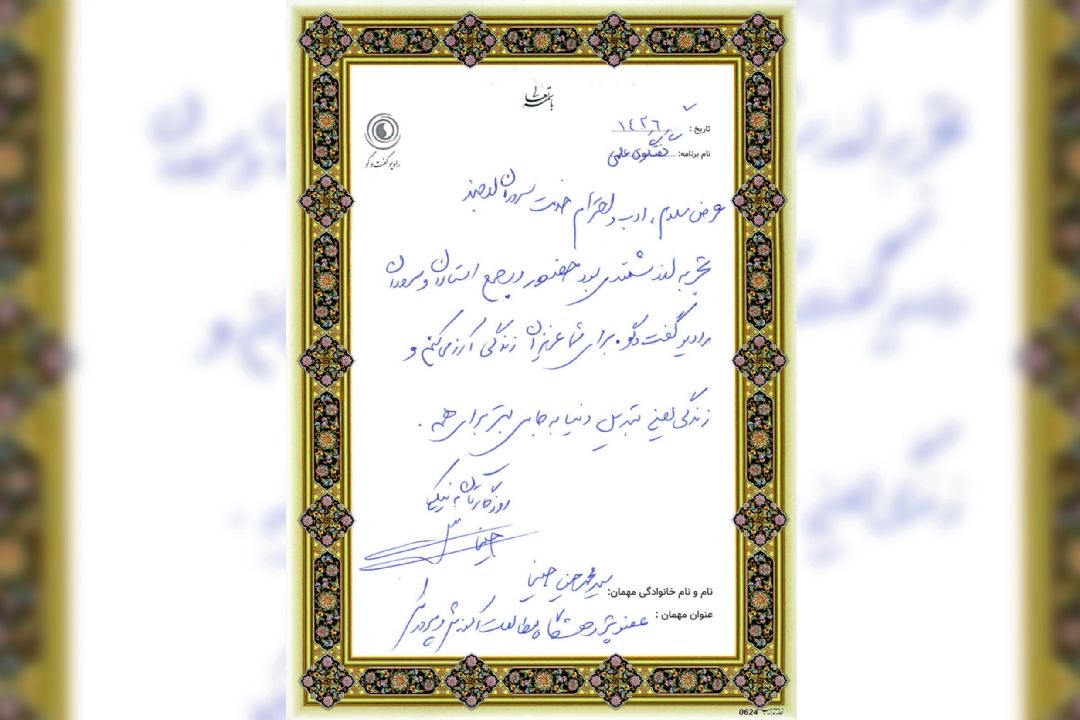 باسمه تعالی
رادیو گفت و گو
تاریخ : ١٤٢٦
نام برنامه: گفتگوی علمی
عرض سلام، ادب و احترام خدمت سروران ارجمند
تجربه ارزشمندی بود حضور در جمع استادان و سروران
رادیو گفت و گو. برای شما عزیزان زندگی آرزو می‌کنم و
زندگی یعنی تبدیل دنیا به جایی بهتر برای همه.
روزگارتان به نیکی
نام و نام خانوادگی مهمان: سید محمدحسین حسینی
عنوان مهمان : عضو پژوهشگاه مطالعات آموزش و پرورش
0624